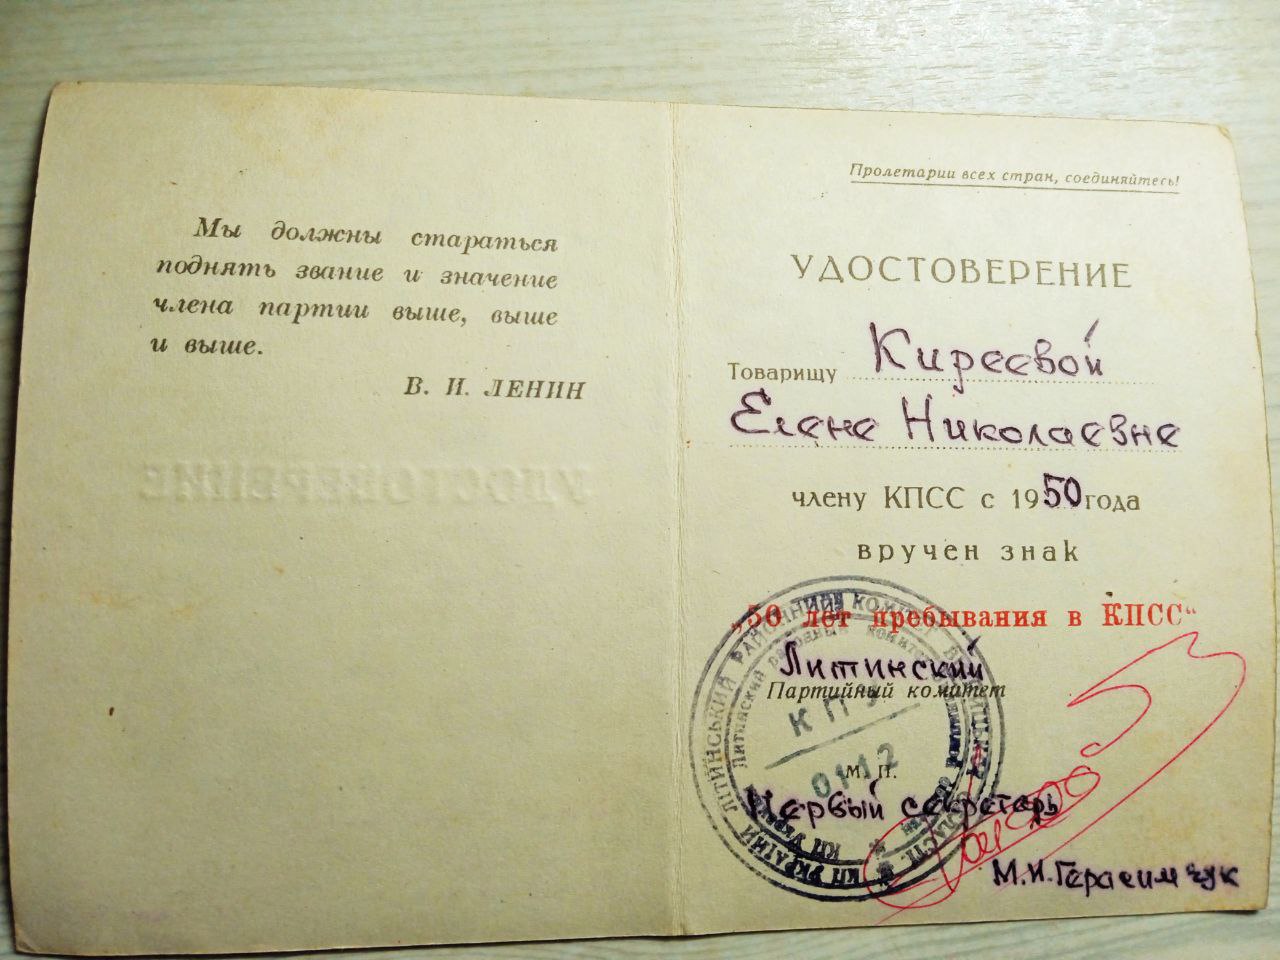 Мы должны стараться
поднять звание и значение
члена партии выше, выше
и выше.
В. И. ЛЕНИН
УДОСТОВЕРЕНИЕ
Пролетарии всех стран, соединяйтесь!
УДОСТОВЕРЕНИЕ
Товарищу Киреевой
Елене Николаевне
члену КПСС с 1950 года
вручен знак
„50 лет пребывания в КПСС“
Литинский
Партийный комитет
М. П.
Первый секретарь
М.И. Герасимчук
ЛІТИНСЬКИЙ РАЙОННИЙ КОМІТЕТ ВІННИЦЬКОЇ ОБЛАСТІ КП УКРАЇНИ
Литинский районный комитет Винницкой области КП Украины
КПУ
0112